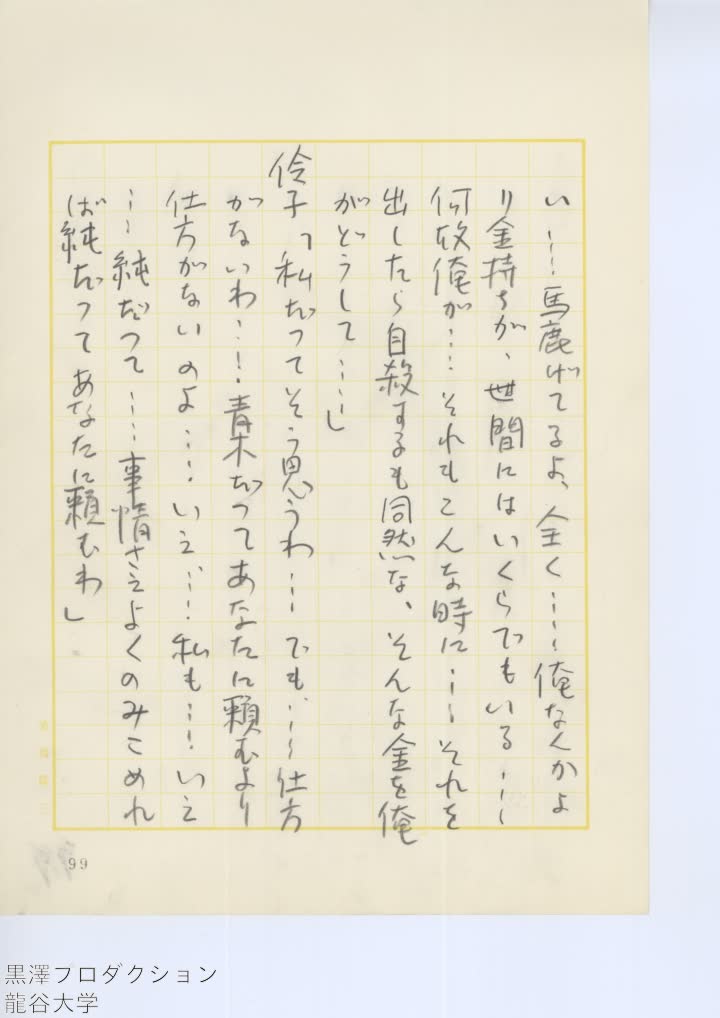 い……馬鹿げてるよ、全く……俺なんかよ
り金持ちが、世間にはいくらでもいる……
何故俺が……それもこんな時に……それを
出したら自殺するも同然な、そんな金を俺
がどうして……」
伶子「私だってそう思うわ……でも……仕方
がないわ……青木だってあなたに頼むより
仕方がないのよ……いえ……私も……いえ
……純だって……事情さえよくのみこめれ
ば純だってあなたに頼むわ」
99
黒澤プロダクション
龍谷大学